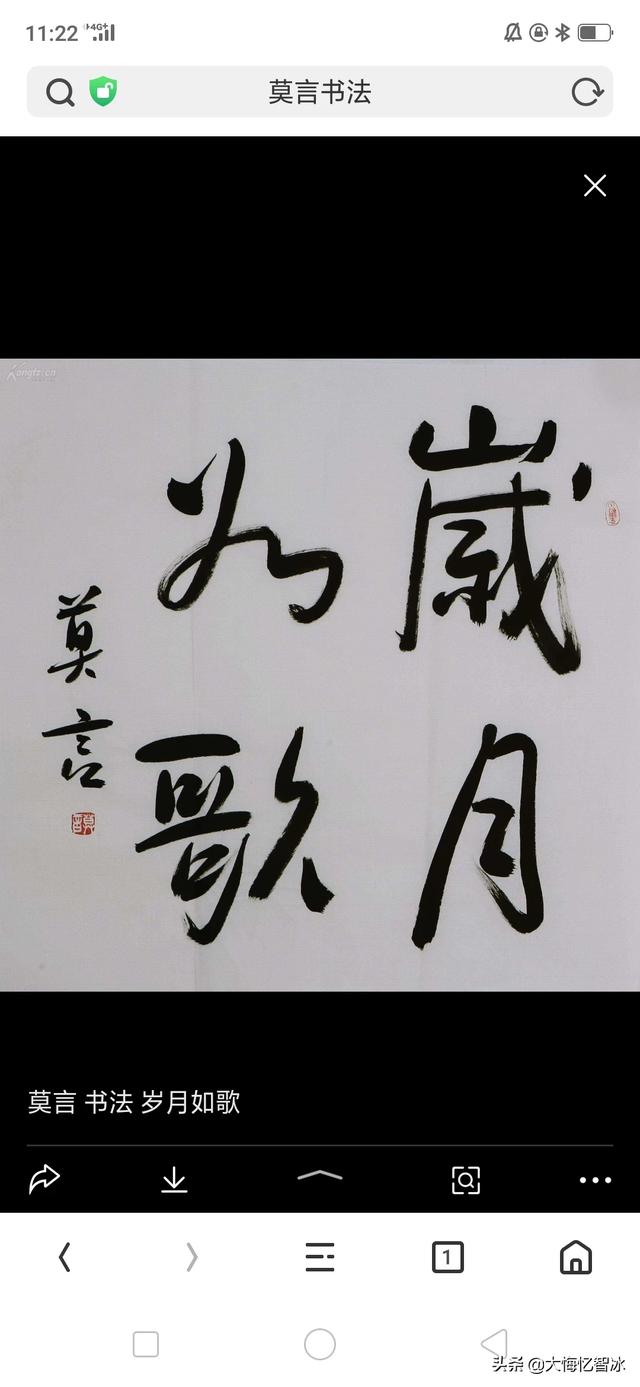 11:22 4G+
莫言书法
Kongfz.cn
歲月
如歌
莫言
莫言 书法 岁月如歌
1
头条 @大悔忆智冰